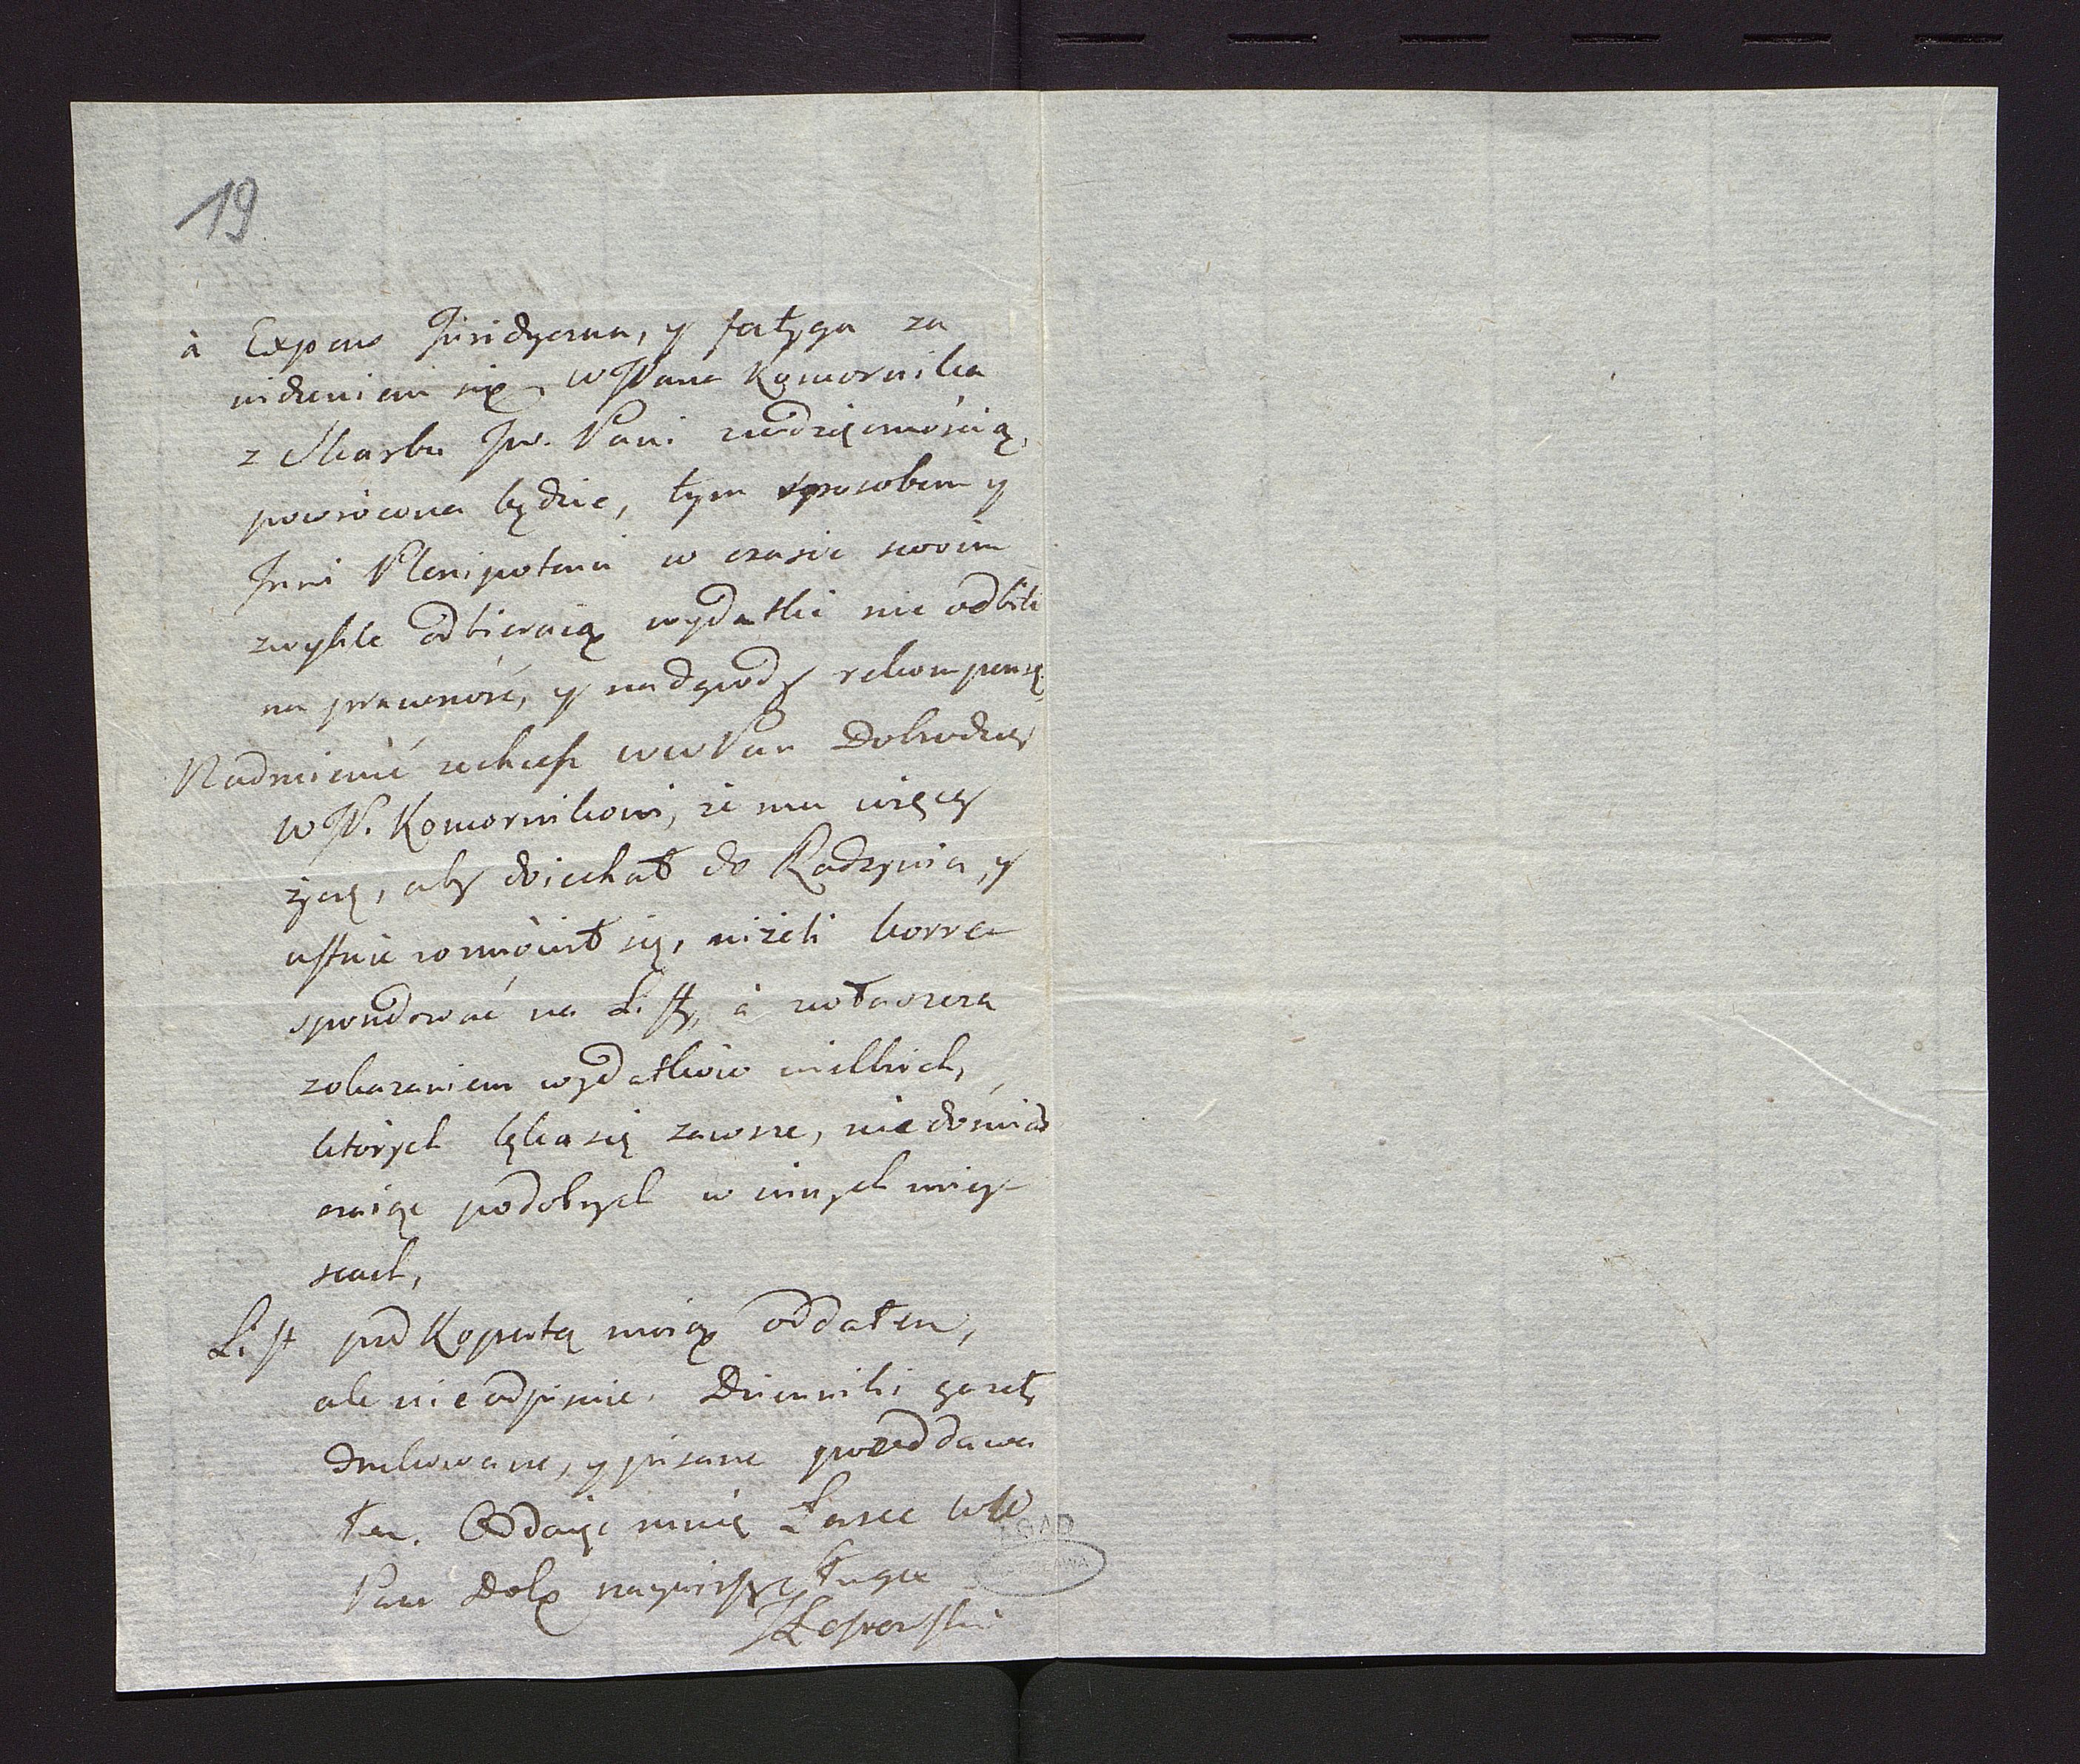 19
à Expens Juridyczna, y fatyga za
widzeniem się WJPana Komornika
z Skarbu Jw. Pani zwdzięcznością,
powrócona będzie, tym sposobem y
Inni Plenipotenci w czasie swoim
zwykle odbieraią wydatki nie odbite
na prawność, y nadgrody rekompensę.
Nadmienić zechcesz WWPan Dobrodziey
WJP. Komornikowi, że mu więcey
życzę, aby doiechał do Radzynia, y
ustnie rozmówił się, niżeli korre-
spondować na Listy, à zwłaszcza
zokazaniem wydatków wielkich,
których lęka się zawsze, niedoświad
czaiąc podobnych w innych miey-
scach,
List pod Kopertą moią oddałem,
ale nie odpisuie. Dzienniki gazety
drukowane, y pisane pooddawa
łem. Oddaię mnię Łasce WW
Pana Dobr nayniższy sługa
AGAD
WARSZAWA